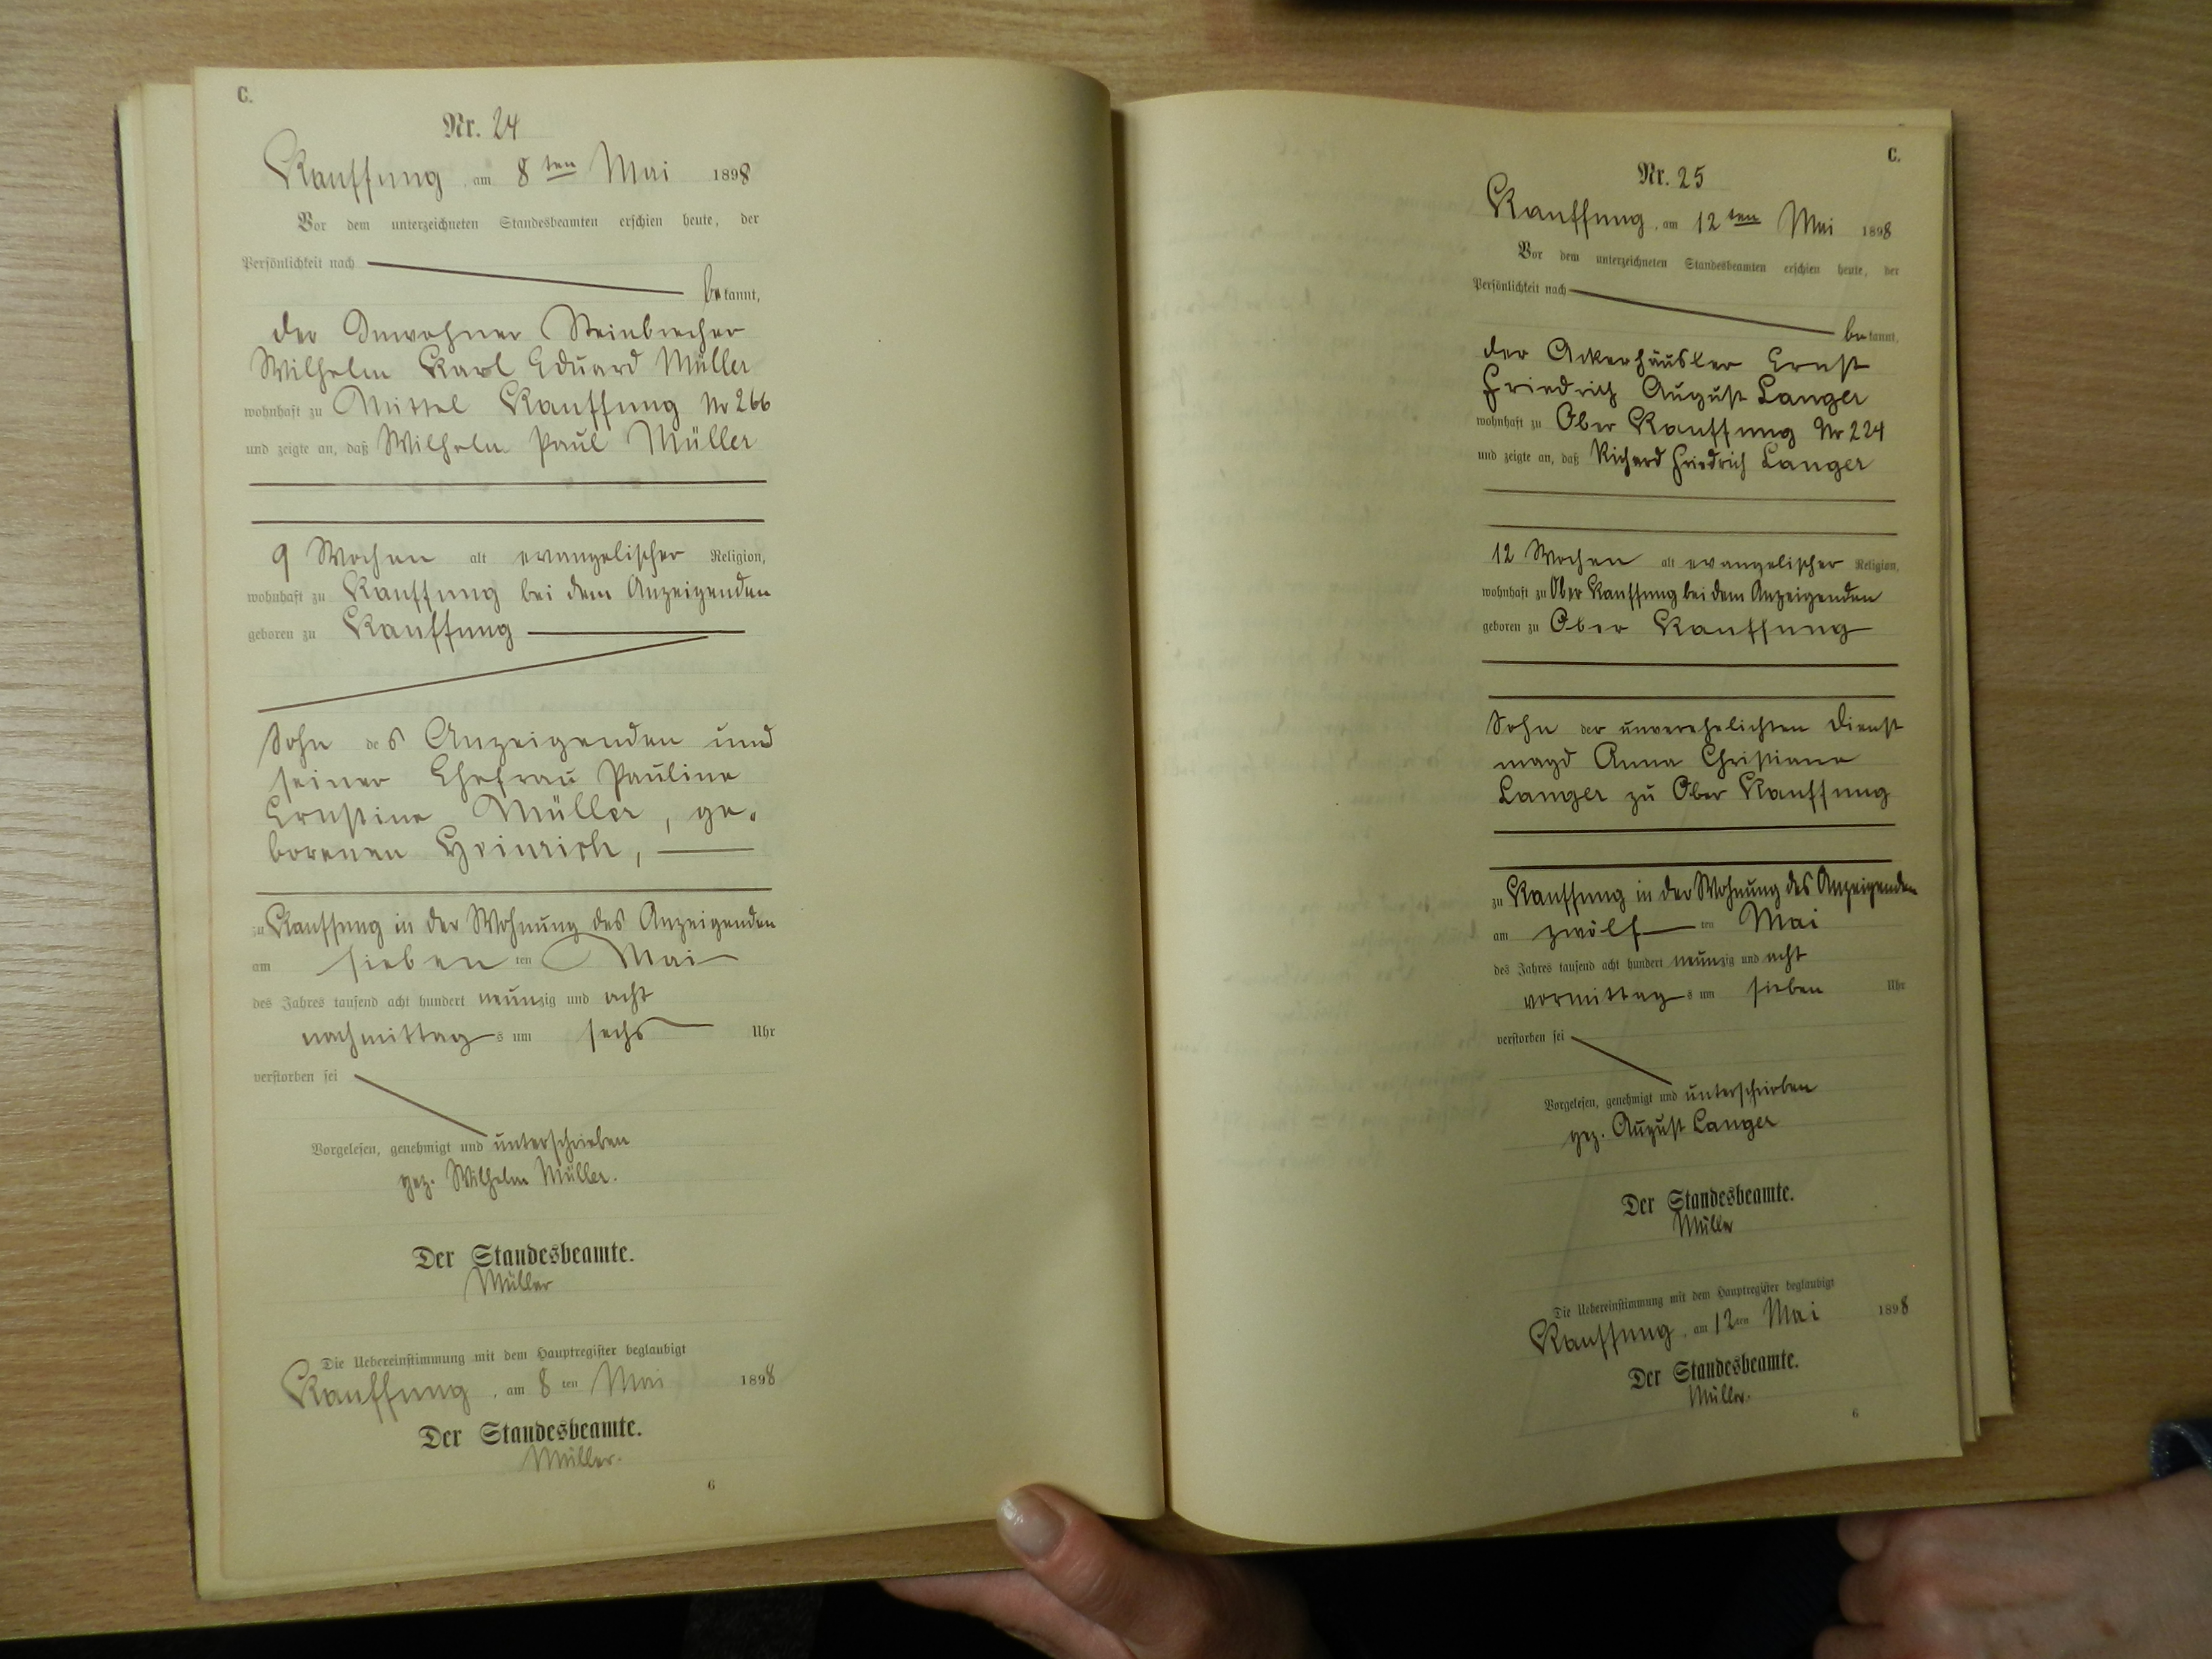 C.
Nr. 24
Kauffung, am 8ten Mai 1898
Vor dem unterzeichneten Standesbeamten erschien heute, der
Persönlichkeit nach
bekannt,
der Inwohner Steinbrecher
Wilhelm Karl Eduard Müller
wohnhaft zu Mittel Kauffung Nr 266
und zeigte an, daß Wilhelm Paul Müller
9 Wochen alt evangelischer Religion,
wohnhaft zu Kauffung bei dem Anzeigenden
geboren zu Kauffung
Sohn des Anzeigenden und
seiner Ehefrau Pauline
Ernstine Müller, ge-
borenen Heinrich,
zu Kauffung in der Wohnung des Anzeigenden
am sieben ten Mai
des Jahres tausend acht hundert neunzig und acht
nachmittags um sechs Uhr
verstorben sei
Vorgelesen, genehmigt und unterschrieben
gez. Wilhelm Müller.
Der Standesbeamte.
Müller
Die Uebereinstimmung mit dem Hauptregister beglaubigt
Kauffung, am 8ten Mai 1898
Der Standesbeamte.
Müller.
6
C.
Nr. 25
Kauffung, am 12ten Mai 1898
Vor dem unterzeichneten Standesbeamten erschien heute, der
Persönlichkeit nach
bekannt,
der Ackerhäusler Ernst
Friedrich August Langer
wohnhaft zu Ober Kauffung Nr 224
und zeigte an, daß Richard Friedrich Langer
12 Wochen alt evangelischer Religion,
wohnhaft zu Ober Kauffung bei dem Anzeigenden
geboren zu Ober Kauffung
Sohn der unverehelichten Dienst
magd Anna Christiane
Langer zu Ober Kauffung
zu Kauffung in der Wohnung des Anzeigenden
am zwölf ten Mai
des Jahres tausend acht hundert neunzig und acht
vormittags um sieben Uhr
verstorben sei
Vorgelesen, genehmigt und unterschrieben
gez. August Langer
Der Standesbeamte.
Müller
Die Uebereinstimmung mit dem Hauptregister beglaubigt
Kauffung, am 12ten Mai 1898
Der Standesbeamte.
Müller.
6